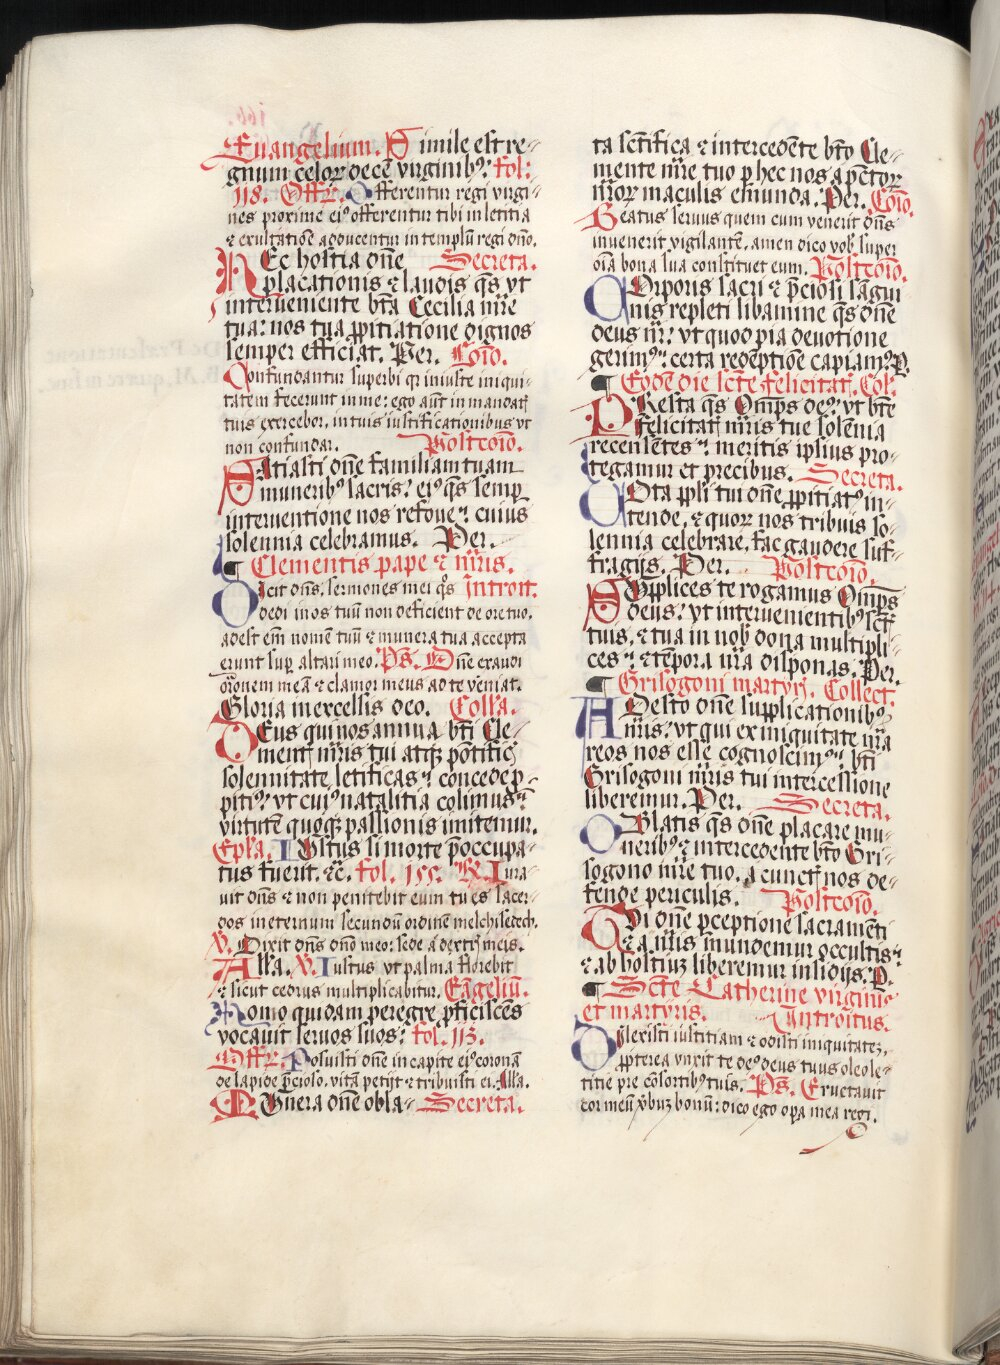 Euangelium. Simile est re-
gnum celoꝝ decē virginibꝰ: fol:
118. Offr. Offerentur regi virgi-
nes proxime eiꝰ offerentur tibi in letitia
⁊ exultatiōe adducentur in templū regi dn̄o.
HEc hostia dn̄e Secreta.
placationis ⁊ laudis q̄s vt
interueniente bt̄a Cecilia mr̄e
tua: nos tua ꝓpitiatione dignos
semper efficiat. Per. Cōio.
Confundantur superbi qꝛ iniuste iniqui-
tatem fecerunt in me: ego aūt in mandatꝭ
tuis exercebor, in tuis iustificationibus vt
non confundar. Postcōio.
SAtiasti dn̄e familiam tuam
muneribꝰ sacris: eiꝰ q̄s semꝑ
interuentione nos refoue: cuius
solennia celebramus. Per.
¶ Clementis pape ⁊ mr̄is.
Dicit dn̄s, sermones mei q̄s Introit.
dedi in os tuū non deficient de ore tuo,
adest em̄ nomē tuū ⁊ munera tua accepta
erunt suꝑ altari meo. Ps. Dn̄e exaudi
or̄onem meā ⁊ clamor meus ad te veniat.
Gloria in excelsis deo. Collā.
DEus qui nos annua bt̄i Cle-
mentꝭ mr̄is tui atqꝫ pōtificꝭ
solennitate letificas: concede ꝓ-
pitiꝰ: vt cuiꝰ natalitia colimus:
virtutē quoqꝫ passionis imitemur.
Epl̄a. IUstus si morte p̄occupa-
tus fuerit. ⁊c. fol. 155. R̄. Iura-
uit dn̄s ⁊ non penitebit eum tu es sacer-
dos in eternum secundū ordinē melchisedech.
V. Dixit dn̄s dn̄o meo: sede a dextrꝭ meis.
Alla. V. Iustus vt palma florebit
⁊ sicut cedrus multiplicabitur. Eāgeliū.
Homo quidam peregre ꝓficiscēs
vocauit seruos suos: fol. 113.
Offr. Posuisti dn̄e in capite eiꝰ coronā
de lapide p̄cioso. vitā petijt ⁊ tribuisti ei. Alla.
MUnera dn̄e obla- Secreta.
ta sc̄tifica ⁊ intercedēte bt̄o Cle-
mente mr̄e tuo ꝑ hec nos a pc̄toꝝ
nr̄oꝝ maculis emunda. Per. Cōio.
Beatus seruus quem cum venerit dn̄s
inuenerit vigilantē, amen dico vobꝭ super
oīa bona sua constituet eum. Postcōio.
COrporis sacri ⁊ p̄ciosi sāgui
nis repleti libamine q̄s dn̄e
deus nr̄: vt quod pia deuotione
gerimꝰ: certa redēptiōe capiamꝰ. P.
¶ Eodē die sc̄te felicitatꝭ. Col.
PResta q̄s Om̄ps deꝰ: vt bt̄e
felicitatꝭ mr̄is tue solēnia
recensētes: meritis ipsius pro-
tegamur et precibus. Secreta.
UOta ppl̄i tui dn̄e ꝓpitiatꝰ in-
tende, ⁊ quoꝝ nos tribuis so-
lennia celebrare, fac gaudere suf-
fragijs. Per. Postcōio.
SUpplices te rogamus Om̄ps
deus: vt interuenientibꝰ sc̄tꝭ
tuis, ⁊ tua in nobꝭ dona multipli-
ces: ⁊ tēpora nr̄a disponas. Per.
¶ Grisogoni martyrꝭ. Collect.
ADesto dn̄e supplicationibꝰ
nr̄is: vt qui ex iniquitate nr̄a
reos nos esse cognoscimꝰ: bt̄i
Grisogoni mr̄is tui intercessione
liberemur. Per. Secreta.
OBlatis q̄s dn̄e placare mu-
neribꝰ ⁊ intercedente bt̄o Gri-
sogono mr̄e tuo. a cunctꝭ nos de-
fende periculis. Postcōio.
TUi dn̄e ꝑceptione sacramēti
⁊ a nr̄is mundemur occultis:
⁊ ab hostiuꝫ liberemur insidijs. P.
¶ Scte Catherine virginis
et martyris. Introitus.
Dilexisti iustitiam ⁊ odisti iniquitatē,
ꝓpterea vnxit te deꝰ deus tuus oleo le-
titie pre cōsortibꝰ tuis. Ps. Eructauit
cor meū v̄buꝫ bonū: dico ego oꝑa mea regi.